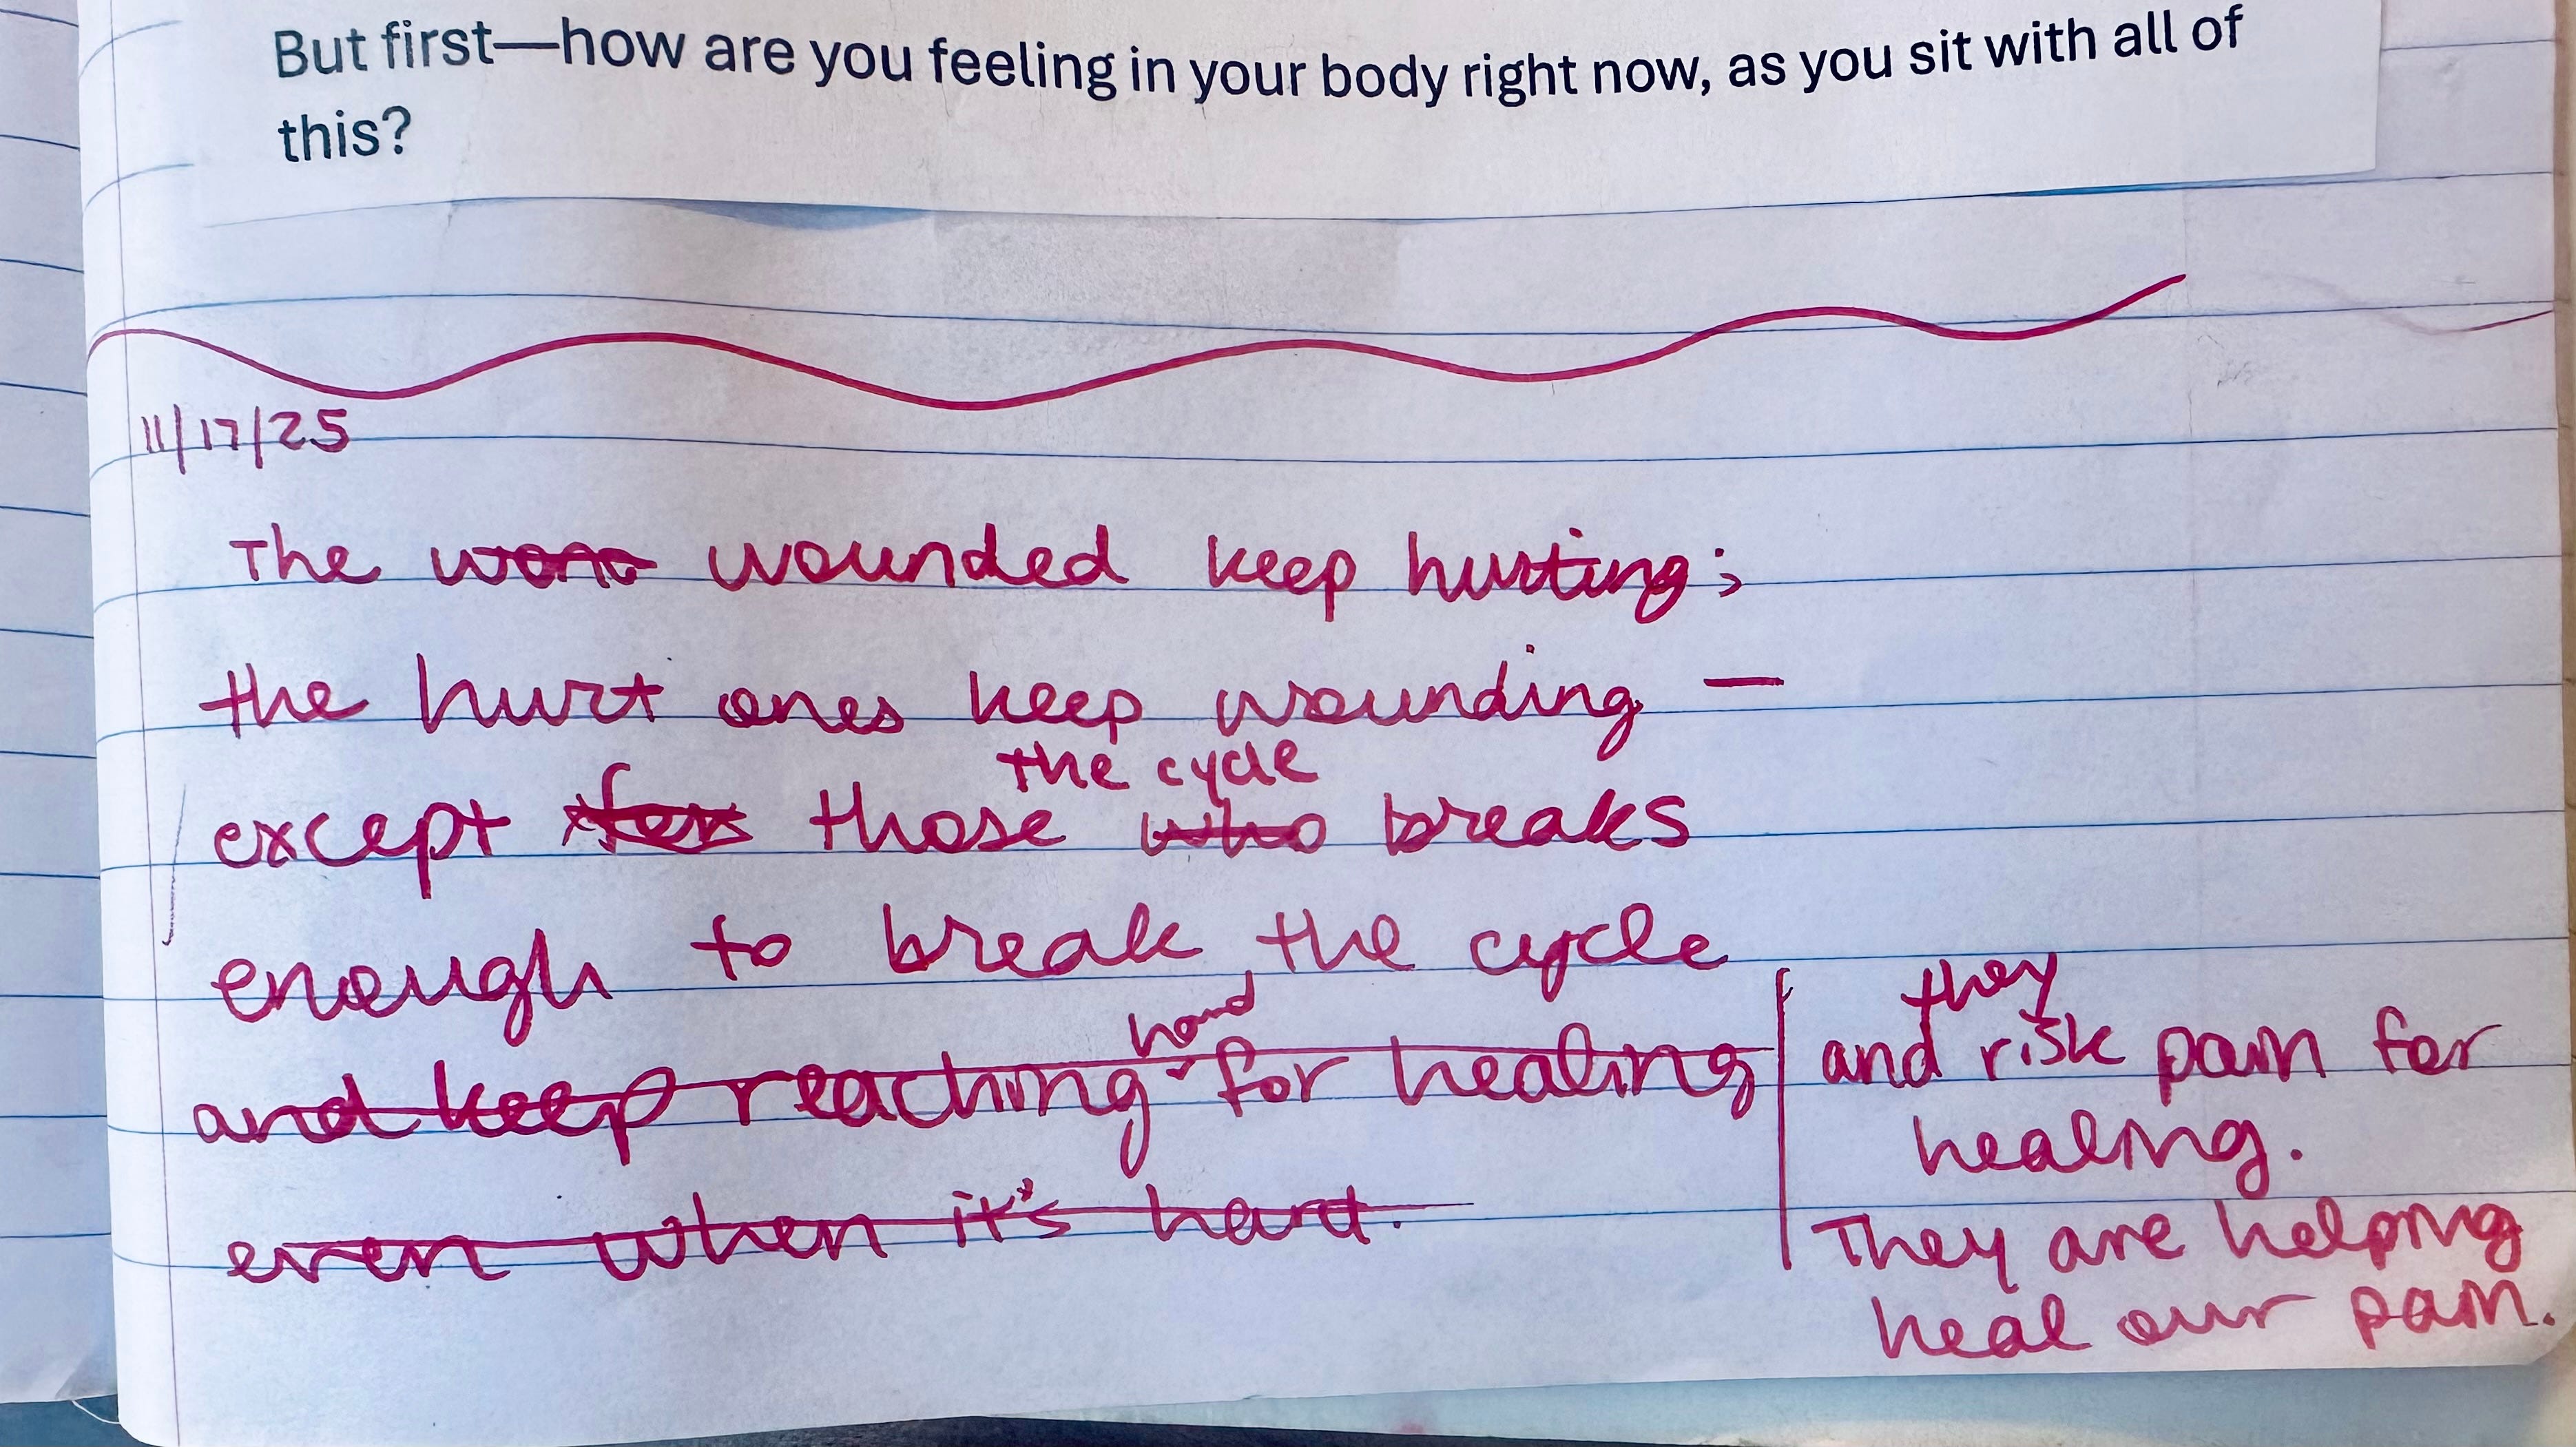 But first—how are you feeling in your body right now, as you sit with all of
this?
11/17/25
The wound wounded keep hurting;
the hurt ones keep wounding —
the cycle
except for those who breaks
enough to break the cycle
hand
and keep reaching for healing
even when it's hard.
they
and risk pain for
healing.
They are helping
heal our pain.